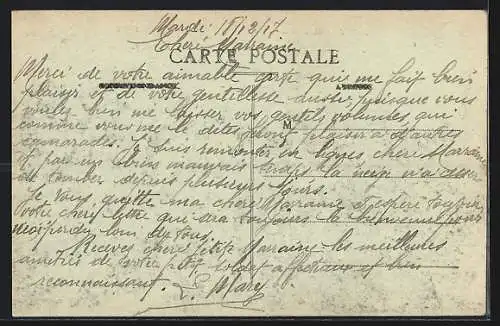 Mardi 18/12/17
Cheré Marraine
CARTE POSTALE
Merci de votre aimable carte qui me fait bien
plaisir et de votre gentillesse aussi, puisque vous
voulez bien me laisser vos gentils volumes, qui
comme vous me le dites feront plaisir à d'autres
camarades. Je suis remonter en lignes chere Marraine
et par un bien mauvais temps la neige n'a cesser
de tomber depuis plusieurs jours.
Je vous quitte ma chere Marraine espere toujours
votre chere lettre qui sera toujours la bienvenue pour
perdu loin de tous.
Recevez chere petite Marraine les meilleures
amitiés de votre petit soldat affectueux et bien
reconnaissant.
M